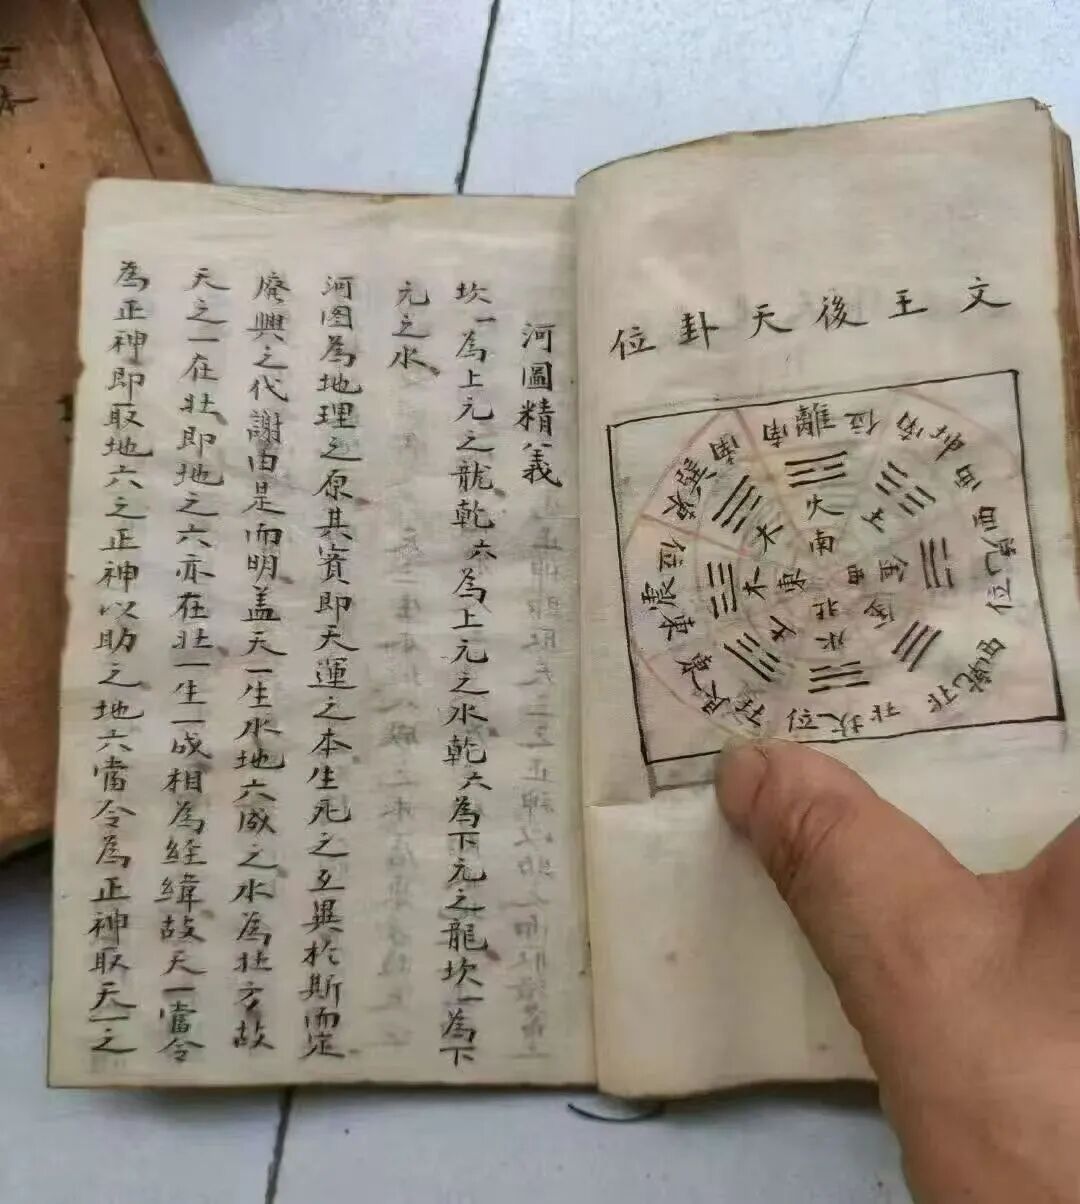 文王後天卦位
南離位
西兌位
西乾北
北坎位
東艮北
東震位
東巽南
火
南
土
金
西
金
水
北
土
木
東
木
河圖精義
坎一為上元之龍乾六為上元之水乾六為下元之龍坎一為下
元之水
河图為地理之原其實即天運之本生死之互異於斯而定
廢興之代謝由是而明盖天一生水地六成之水為北方故
天之一在北即地之六亦在北一生一成相為経緯故天一當令
為正神即取地六之正神以助之地六當令為正神取天一之